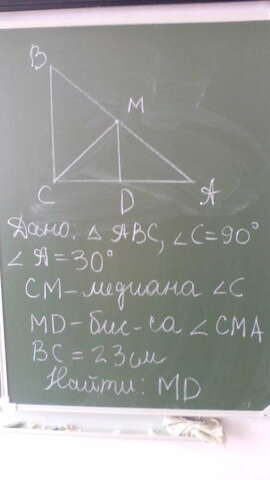 B
M
C
D
A
Дано: △ ABC, ∠C=90°
∠ A=30°
CM-медиана ∠C
MD-бис-са ∠ CMA
BC = 23 см
Найти: MD